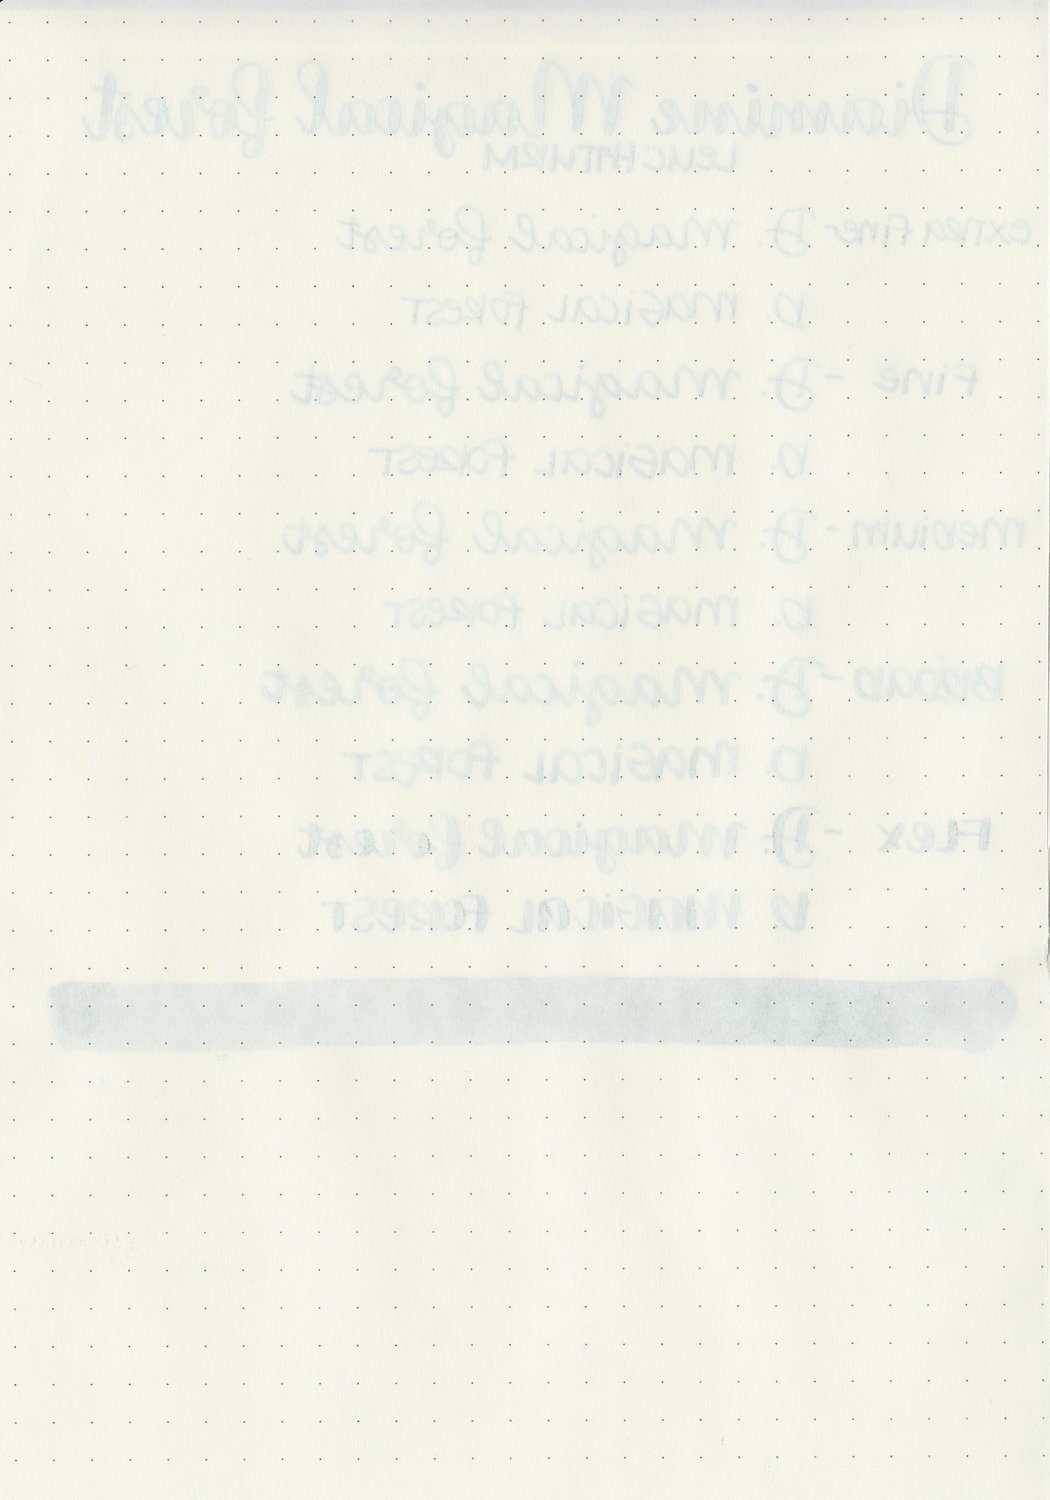 Diamine Magical forest
LEUCHTTURM
extra Fine - D. Magical forest
D. Magical Forest
Fine - D. Magical forest
D. Magical Forest
Medium - D. Magical forest
D. Magical Forest
Broad - D. Magical forest
D. Magical Forest
Flex - D. Magical forest
D. Magical Forest